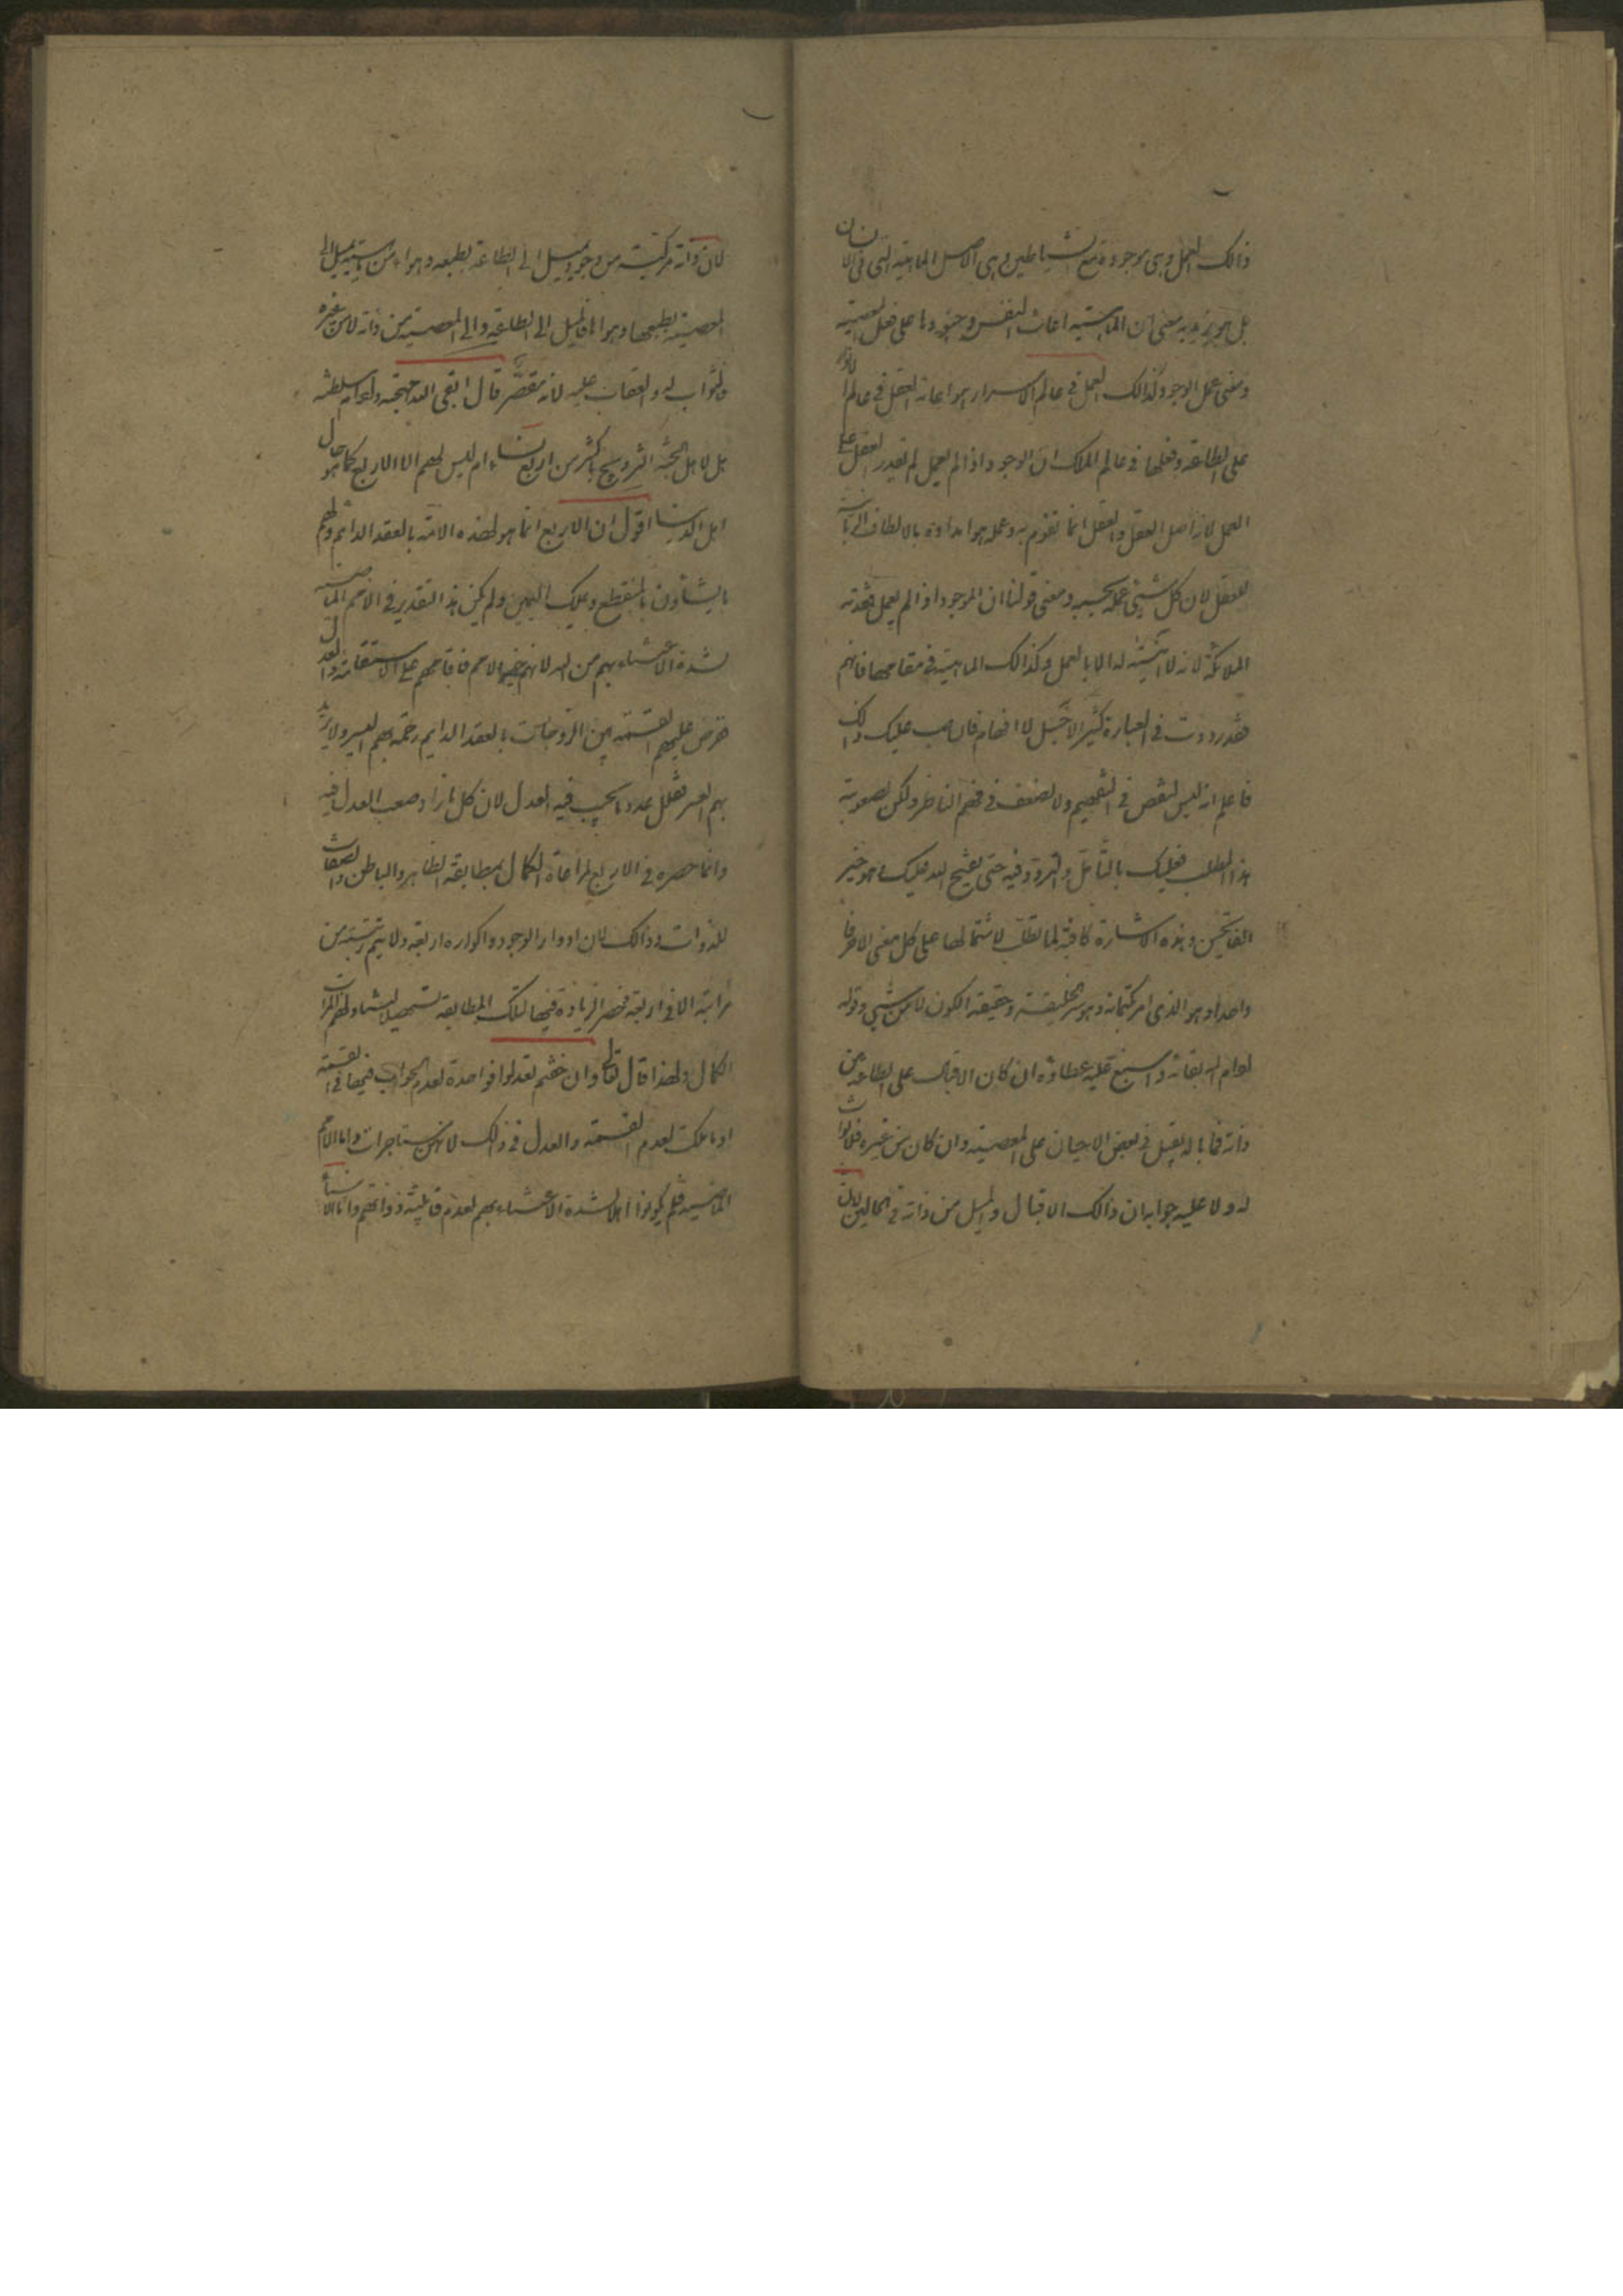 ذالك العمل وهى موجودة مع الشياطين وهى الاصل الماهية التى فى الانسان
بل هو يزيد به معنى ان الماهية اعانت النفس وجنودها على فعل المعصية
ومعنى عمل الوجود كذالك العمل فى عالم الاسرار هو اعانة العقل فى عالم الانوار
على الطاعة وفعلها فى عالم الملك ان الوجود اذا لم يعمل لم يقدر العقل على
العمل لانه اصل العقل والعقل انما تقوم به وعمله هو امداده بالالطاف الربانية
للعقل لان كل شيئى عمله بحسبه ومعنى قولنا ان الموجود اذا لم يعمل
الملائكة لانه لا له الا بالعمل وكذالك الماهية فى مقامها فافهم
فقد رددت فى العبارة كثيرا لاجل الافهام فان صعب عليك ذالك
فاعلم انه ليس لنقص فى التفهيم ولا لضعف فى فهم الناظر ولكن لصعوبة
هذا المطلب فعليك بالتأمل والتردد فيه حتى يفتح الله عليك وهو خير
الفاتحين وهذه الاشارة كافية لما تطلب لاشتمالها على كل معنى الا حرفا
واحدا وهو الذى امر بكتمانه وهو سر الخليقة وحقيقة الكون لا من شيئ وقوله
ادام الله بقائه واسبغ عليه عطاؤه ان كان الاقبال على الطاعة من
ذاته فما باله يقبل فى بعض الاحيان على المعصية وان كان من غيره فلا ثواب
له ولا عليه جوابه ان ذالك الاقبال والميل من ذاته فى الحالين لان
لان ذاته مركبة من وجود يميل الى الطاعة بطبعه وهواه ومن ماهية تميل الى
المعصية بطبعها وهواها فالميل الى الطاعة والى المعصية من ذاته لا من غيره
فالثواب له والعقاب عليه لانه مقصر قال ابقى الله مهجته وادام سلطنته
هل لاهل الجنة التزويج باكثر من اربع نساء ام ليس لهم الا الاربع كما هو حال
اهل الدنيا اقول ان الاربع انما هو لهذه الامة بالعقد الدائم ولهم
ما يشاؤن بالمنقطع وملك اليمين ولم يكن هذا التقدير فى الامم الماضية
لشدة الاعتناء بهم من الله لانهم خير الامم فاقامهم على الاستقامة والعدل
ففرض عليهم القسمة بين الزوجات بالعقد الدايم رحمة بهم اليسر ولا يريد
بهم العسر فقلل عدد ما يجب فيه العدل لان كل ما زاد صعب العدل فيه
وانما حصره فى الاربع لمراعاة الكمال بمطابقة الظاهر والباطن والصفات
للذوات وذالك لان ادوار الوجود واكواره اربعة ولا يتم رتبة من
مراتبه الا فى اربعة فحصر الزيادة فيها لتلك المطابقة تسهيلا لهم المراتب
الكمال ولهذا قال تعالى وان خفتم الا تعدلوا فواحدة لعدم فيها فى القسمة
او ما ملكت لعدم القسمة والعدل فى ذالك لانهن مستاجرات واما الامم
الماضية فلم يكونوا اهلا لشدة الاعتناء بهم لعدم قابلية ذواتهم واما